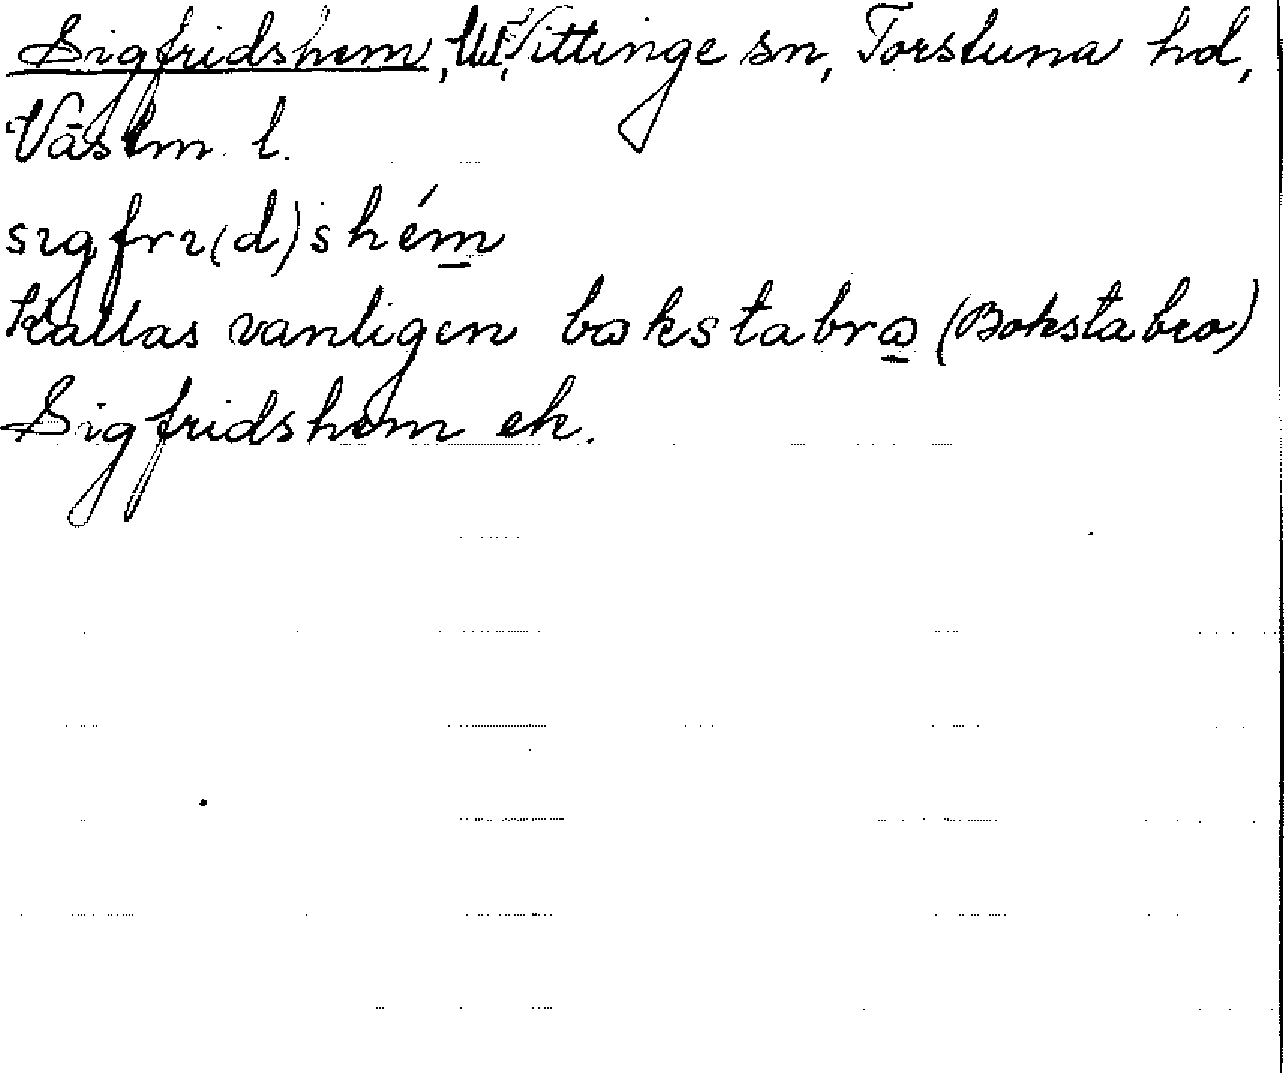 Sigfridshem, Vittinge sn, Torstuna hd,
Västm. l.
sɪgfrɪ(d)shém̲
Kallas vanligen bωkstabrω̲ (Bokstabro)
Sigfridshem ek.